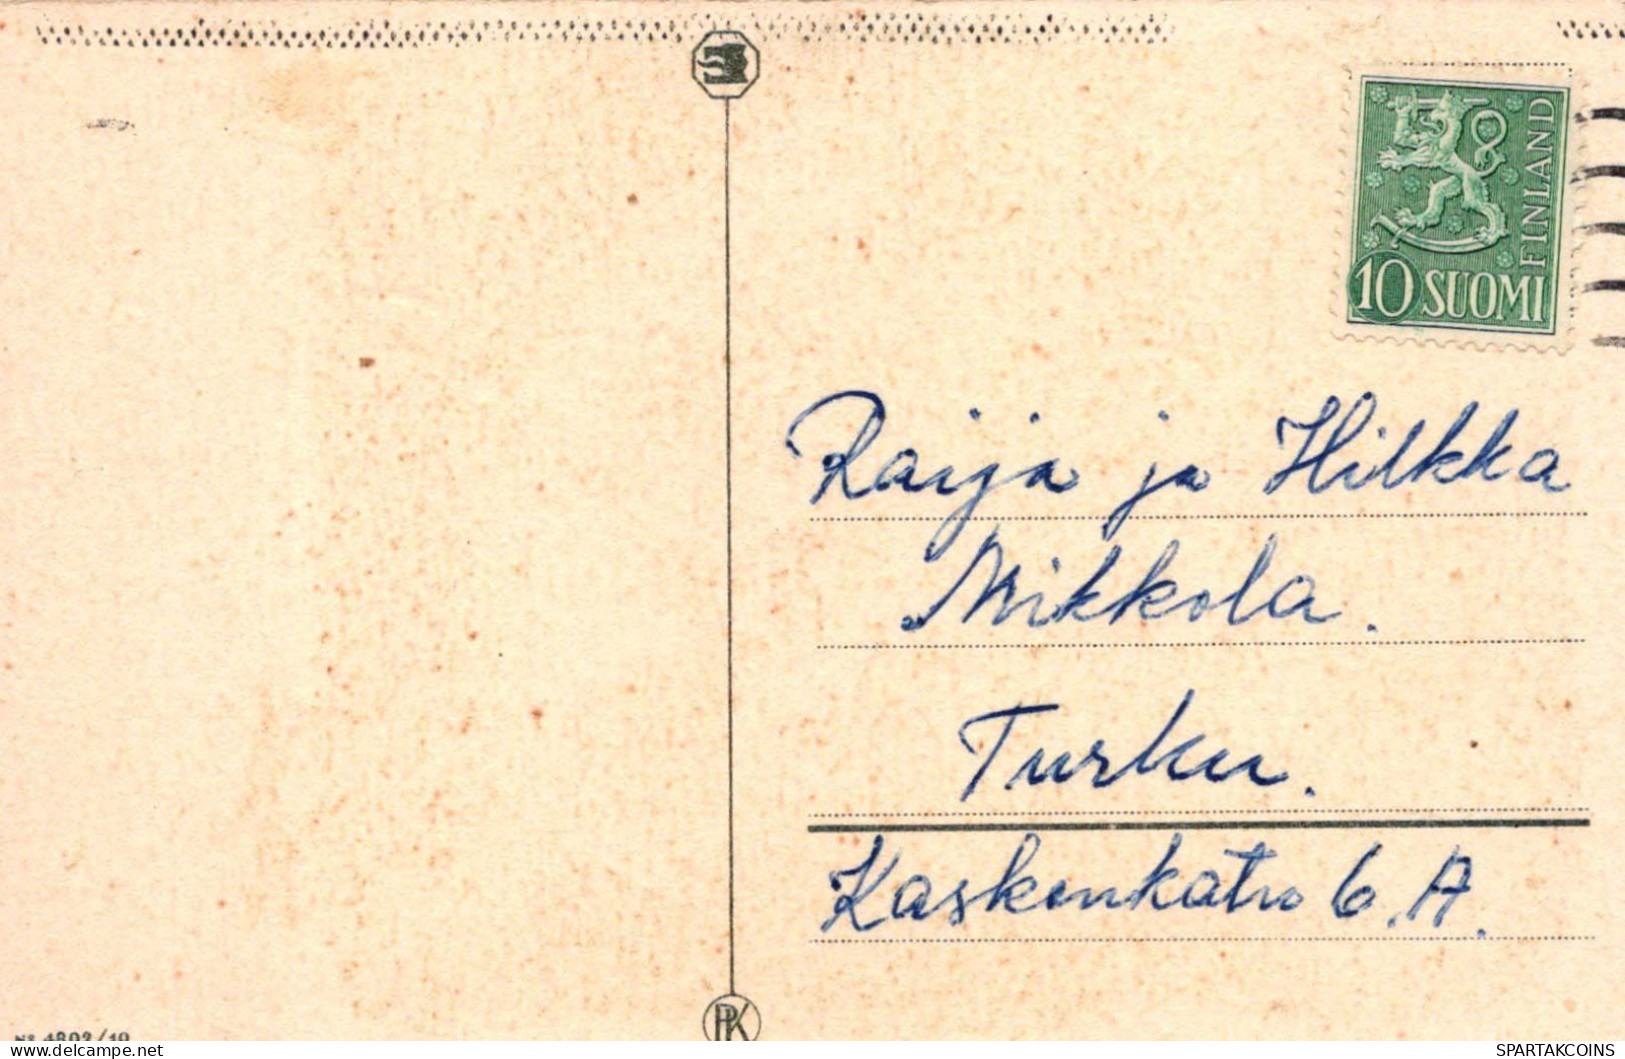 10 SUOMI
FINLAND
Raija ja Hilkka
Mikkola.
Turku.
Kaskenkatu 6.A.
PK
Nº 4802/10
delcampe.net
SPARTAKCOINS